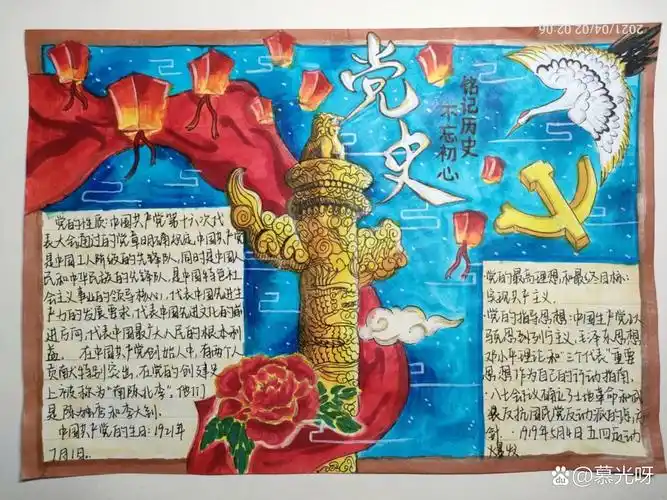 2021/04/02 02:06
党史
铭记历史
不忘初心
党的性质:中国共产党第十六次代
表大会通过的党章明确规定,中国共产党
是中国工人阶级的先锋队,同时是中国人
民和中华民族的先锋队,是中国特色社
会主义事业的领导核心,代表中国先进生
产力的发展要求,代表中国先进文化的前
进方向,代表中国最广大人民的根本利
益。 在中国共产党创始人中,有两个人
贡献特别突出,在党的创建史
上被称为“南陈北李”,他们
是陈独秀和李大钊。
中国共产党的生日:1921年
7月1日。
党的最高理想和最终目标:
实现共产主义。
·党的指导思想:中国共产党以马
列主义、毛泽东思想、
邓小平理论和“三个代表”重要
思想作为自己的行动指南。
·八七会议确定了土地革命和武
装反抗国民党反动派的总方
针。·1919年5月4日五四运动
爆发
@慕光呀